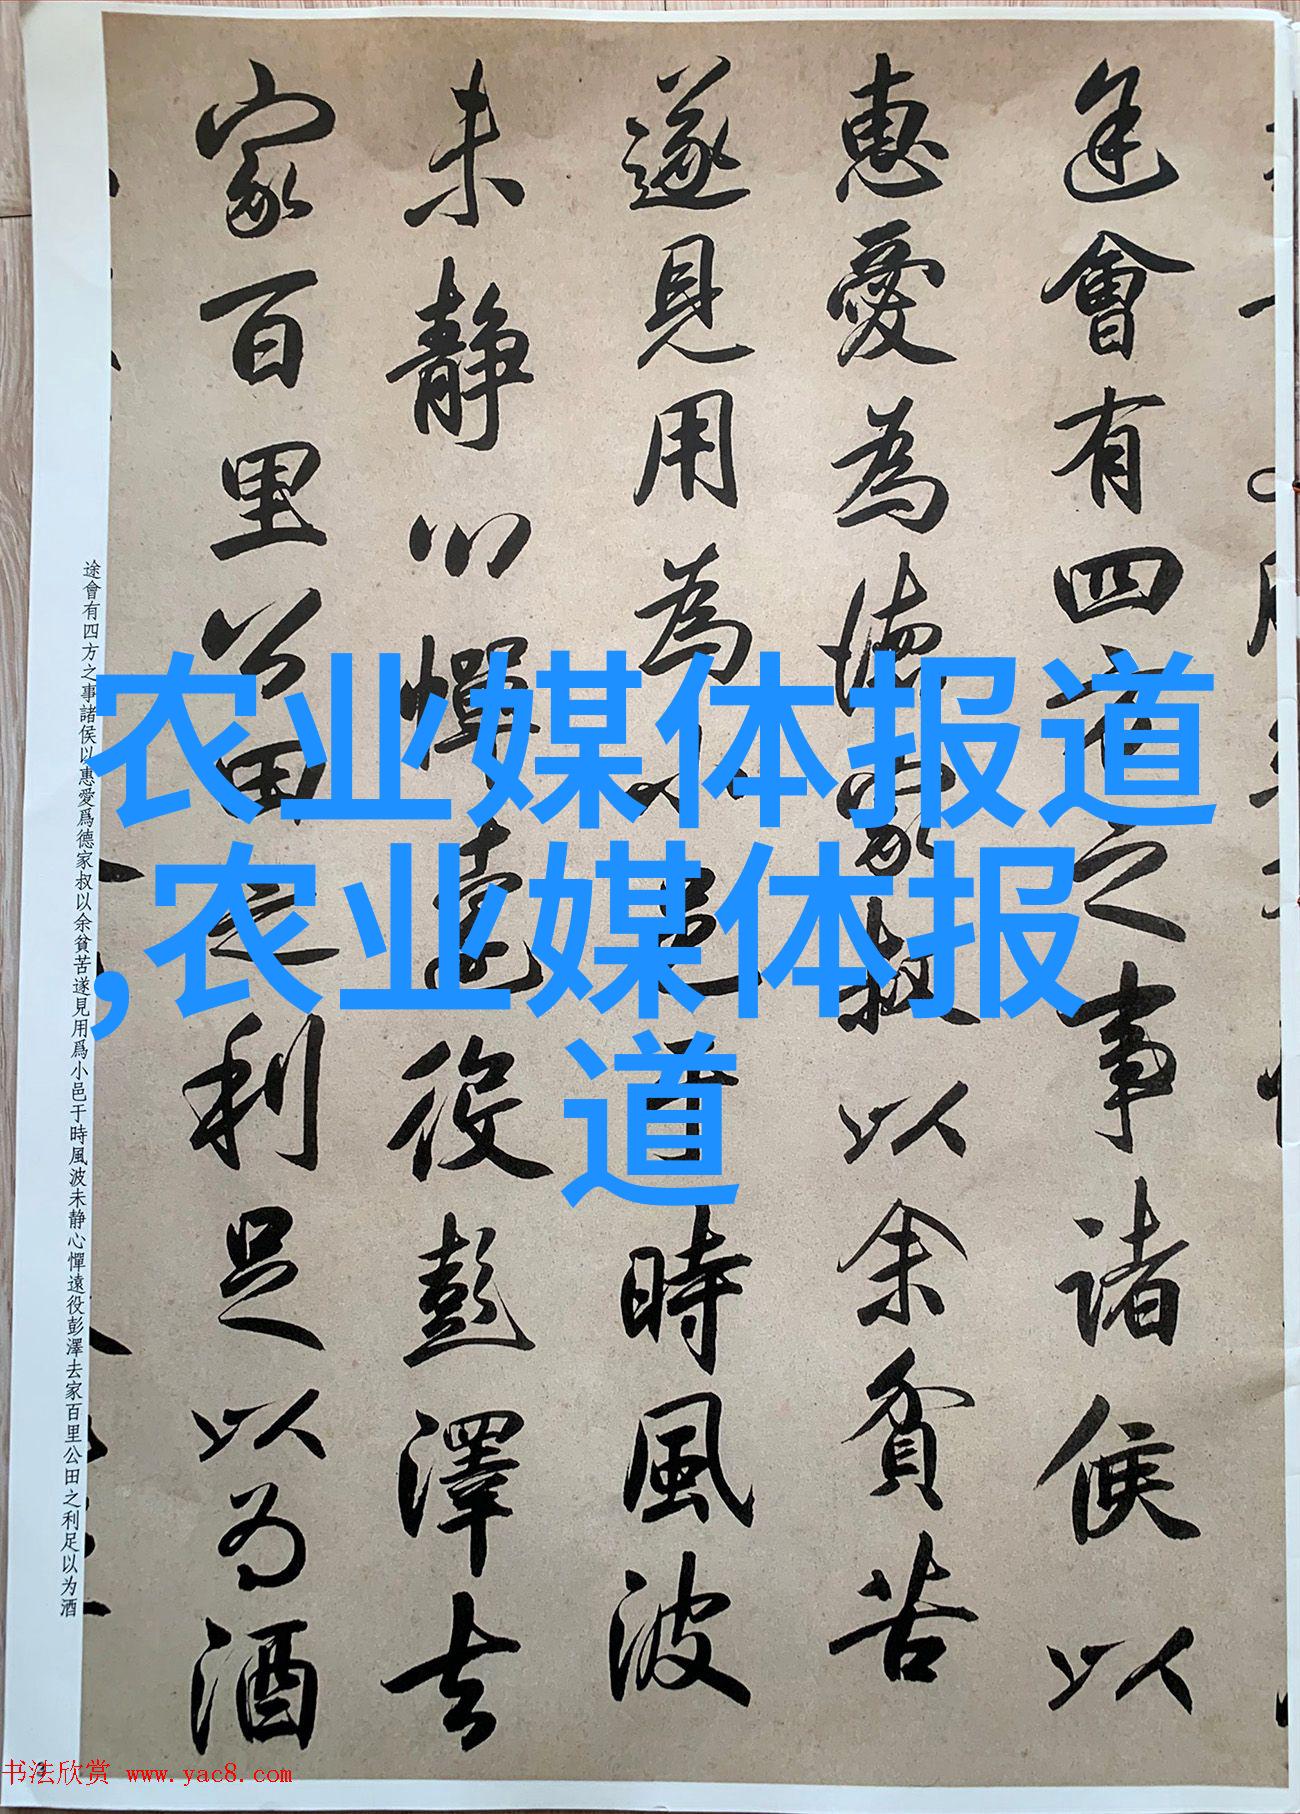 途會有四方之事諸侯以
惠愛為德家叔以余貧苦
遂見用為小邑于時風波
未静心憚遠役彭澤去
家百里公田之利足以为酒
途會有四方之事諸侯以惠愛爲德家叔以余貧苦遂見用爲小邑于時風波未静心憚遠役彭澤去家百里公田之利足以为酒
农业媒体报道
,农业媒体报
道
3
书法欣赏 www.yac8.com